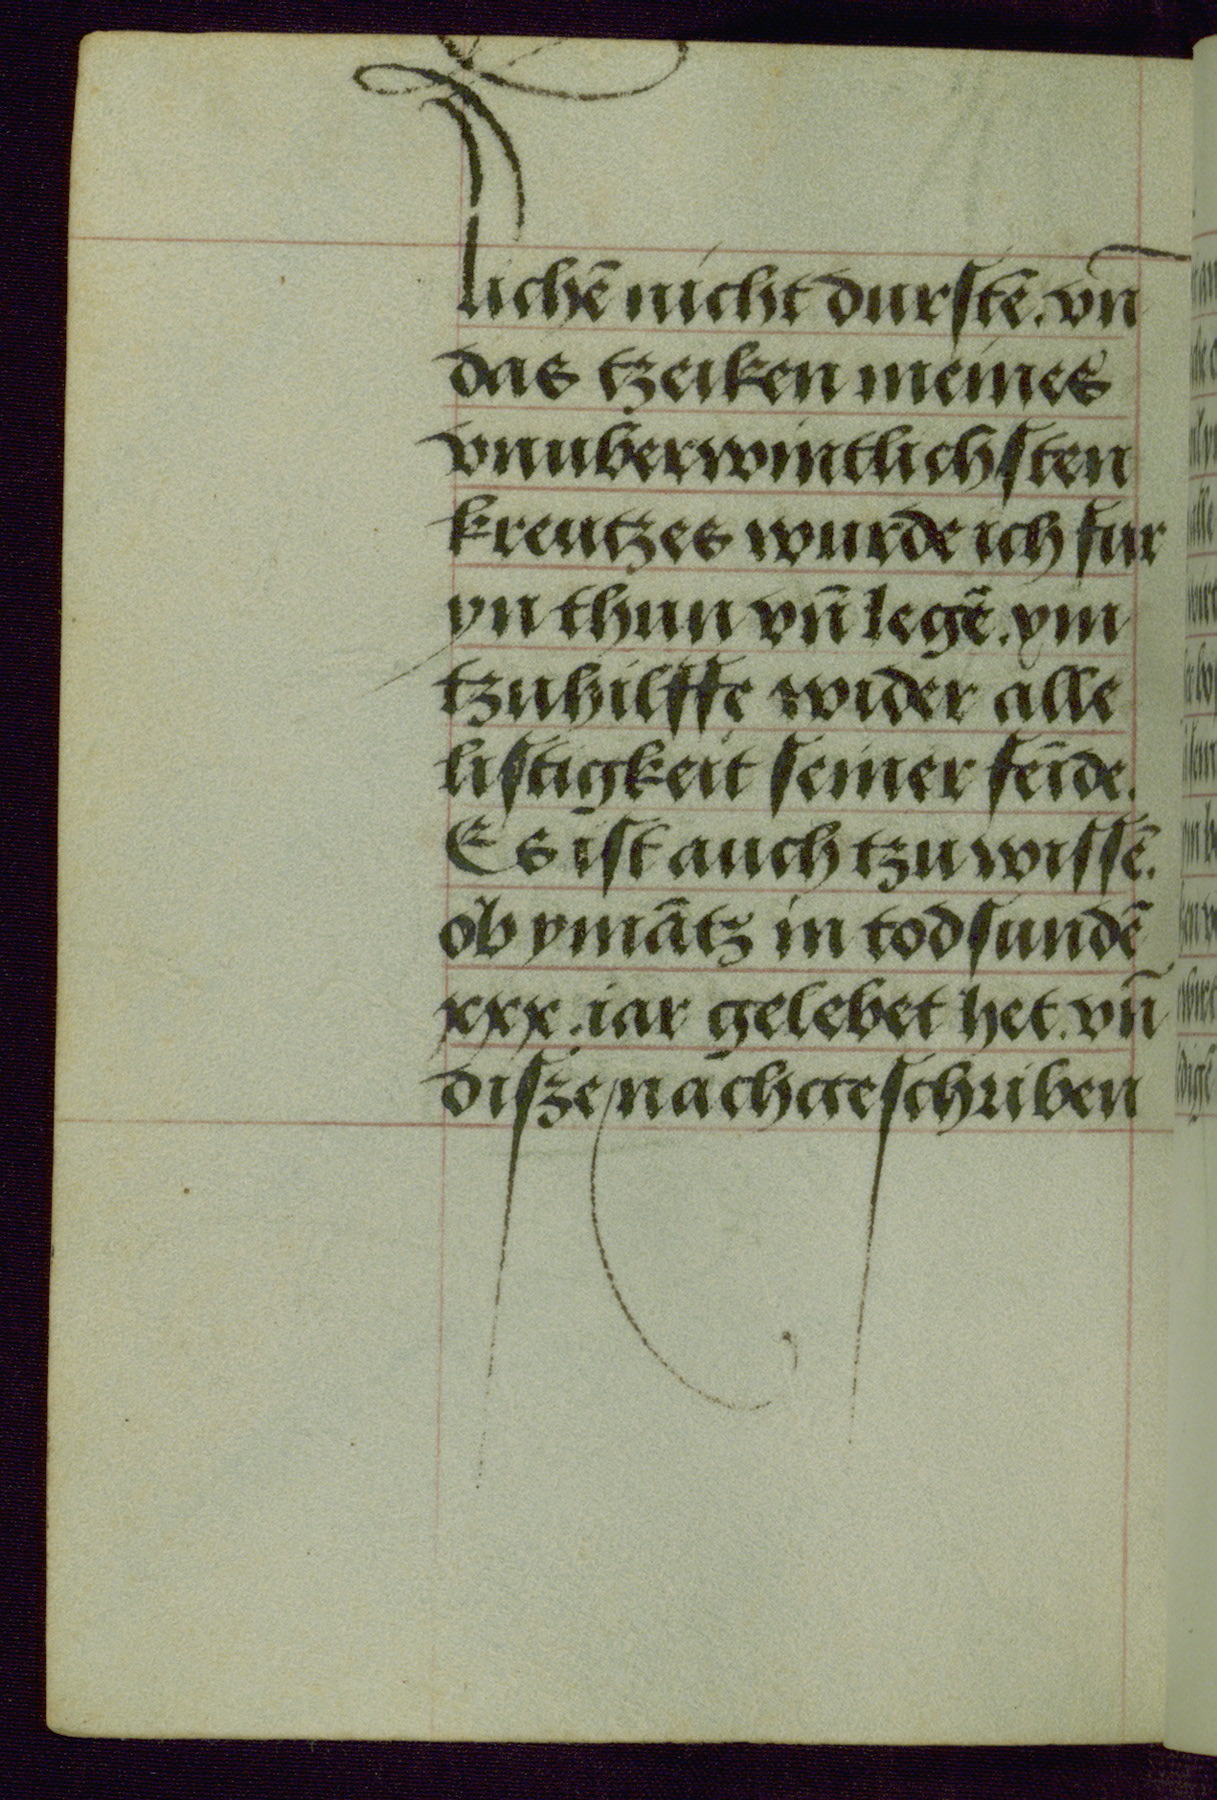 lichē nicht durſtē. vn̄
das tzeiken meines
vnuberwintlichſten
kreutzes wurde ich fur
yn thun vn̄ legē. ym
tzuhilffe wider alle
liſtigkeit ſeiner fēide.
Es iſt auch tzu wiſſē.
ob ymātz in todſundē
xxx. iar gelebet het. vn̄
diſze nachgeſchriben